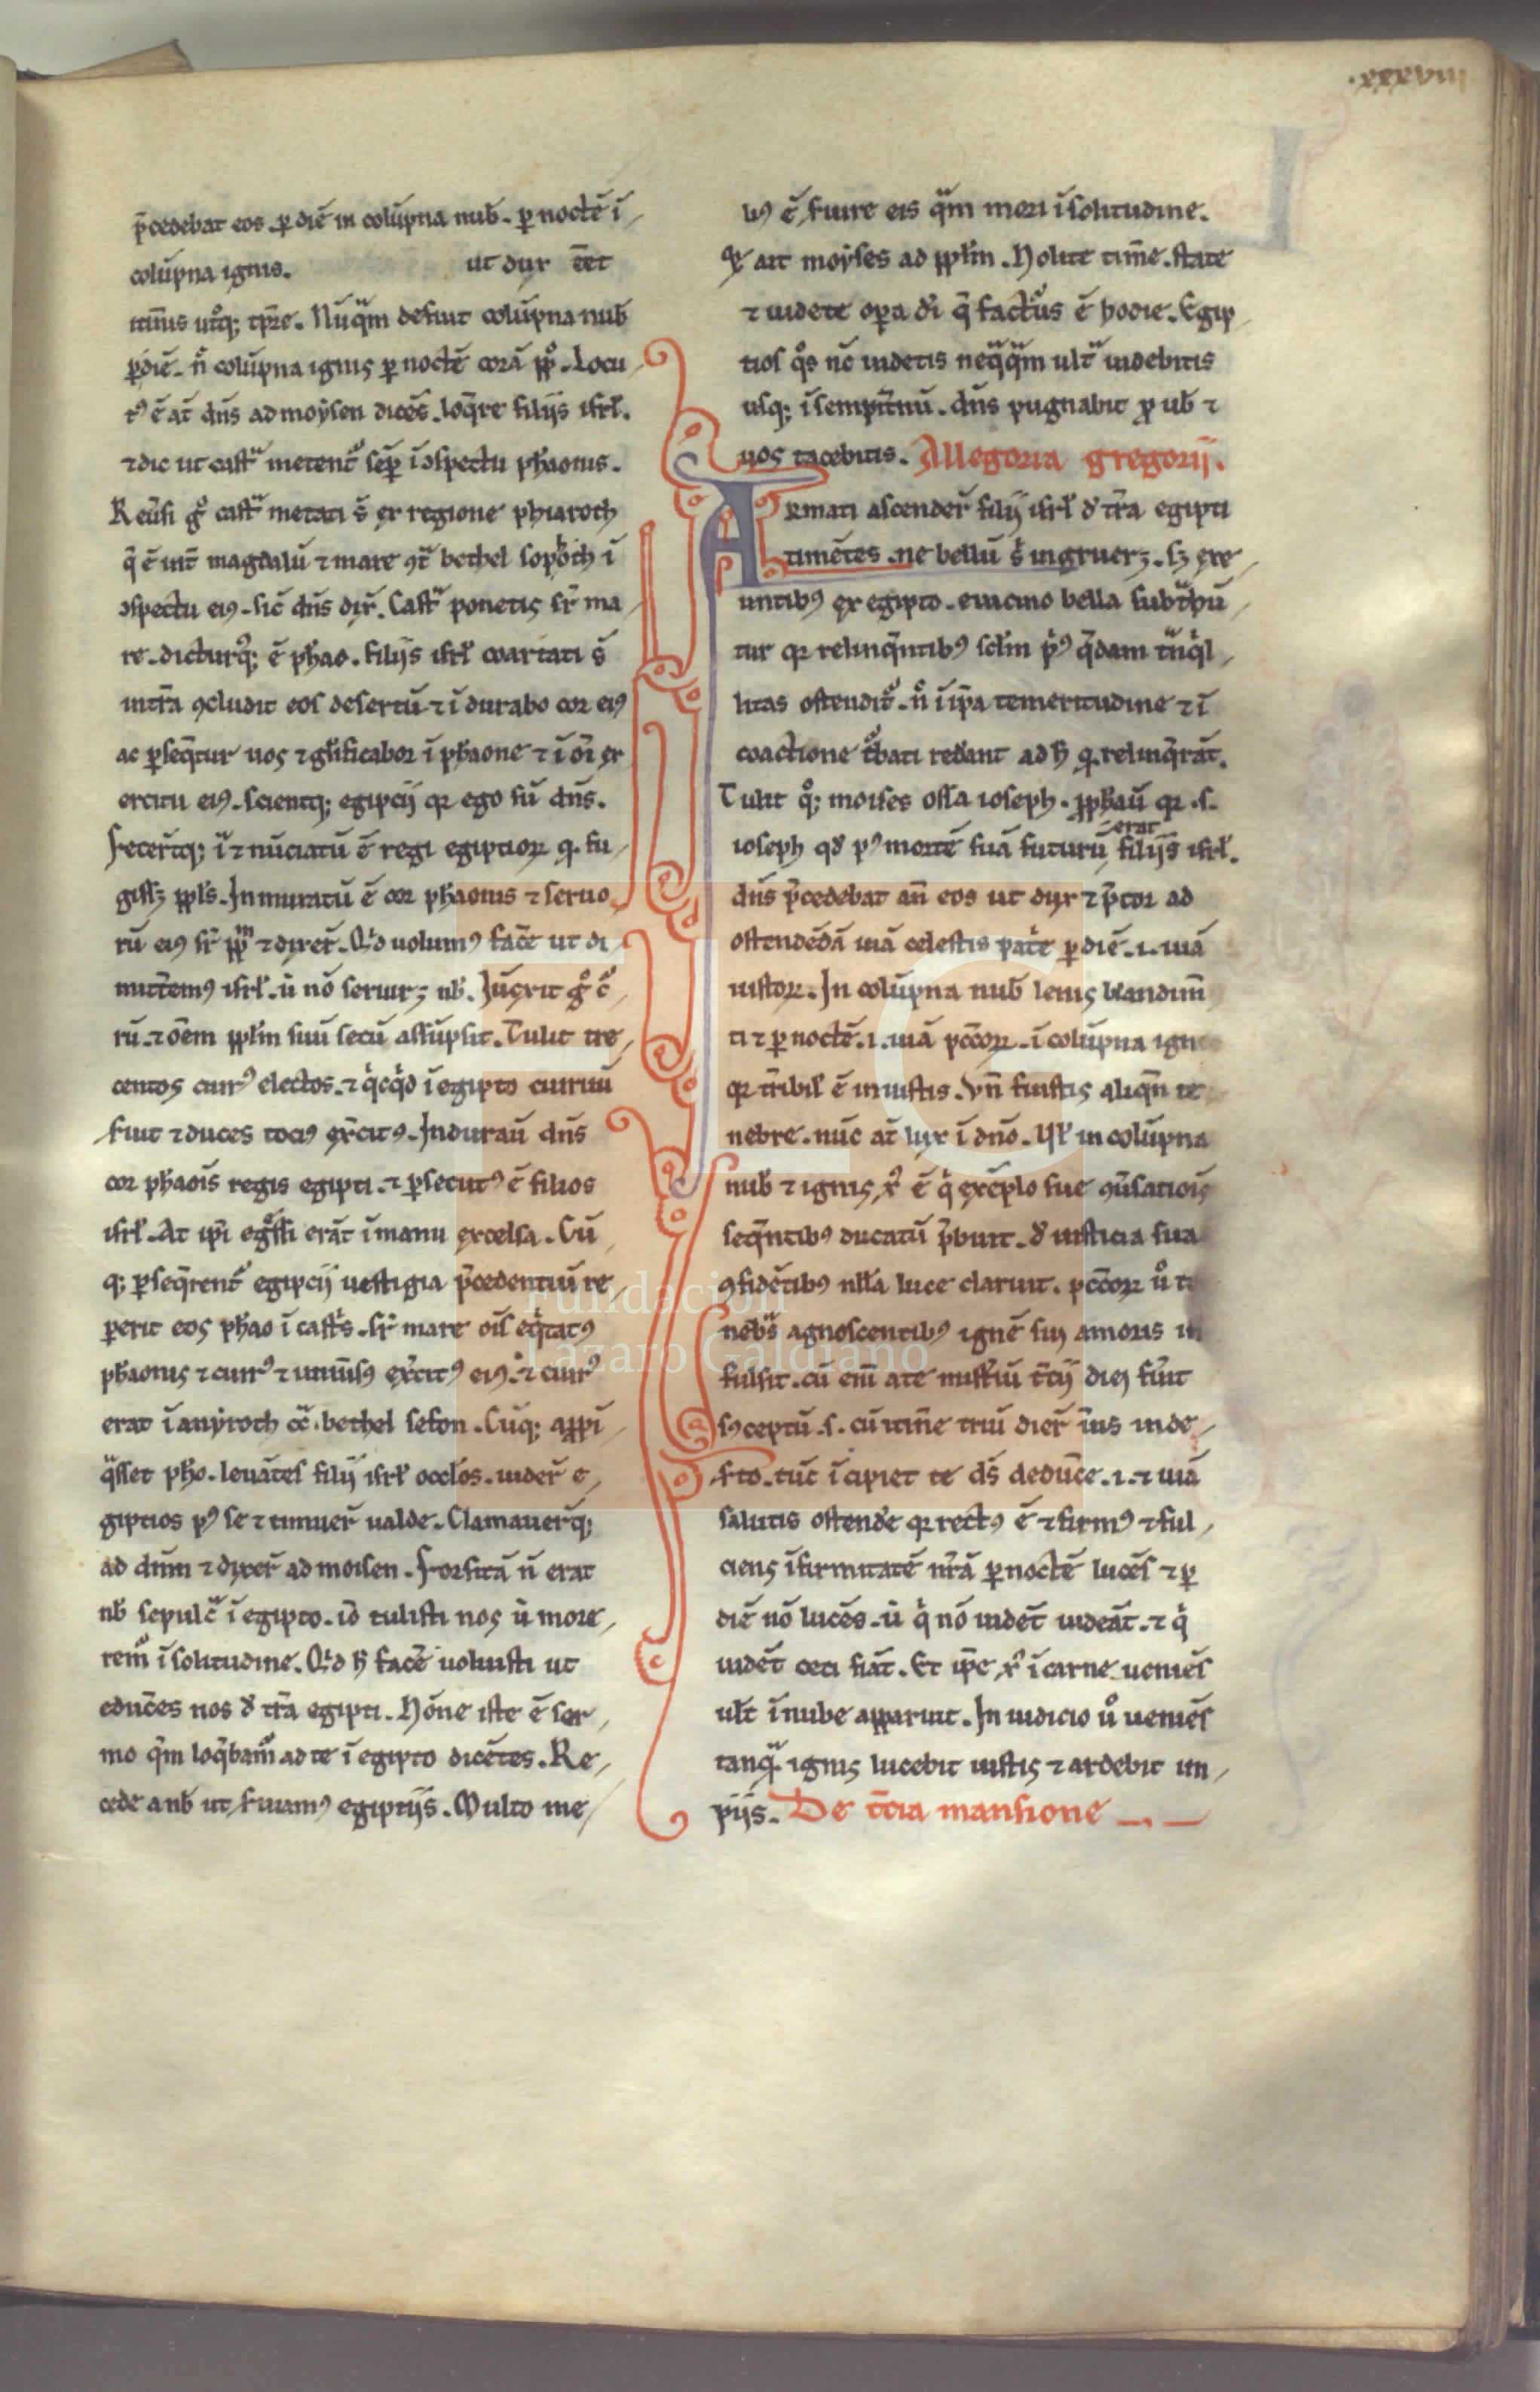 .xxxviii
p̄cedebat eos. ꝑ diē in colūpna nub̄. ꝑ noctē ī
colūpna ignis. ut dux ēēt
itin̄is ut̊q; tp̄re. Nūqᷓm defuit colūpna nub̄
ꝑ diē. n̄ colūpna ignis ꝑ noctē corā pp̊. Locu
tꝰ ē at̄ dn̄s ad moẏsen dicēs. loq̄re filiis isrl̄.
⁊ dic ut castᷓ metent̊ sep̄ ī ɔspectu ph̄aonis.
Reūsi g̊ castᷓ metati s̄ ex regione phiaroth
q̄ ē int̄ magdalū ⁊ mare ꝯt̄ bethel ī
ɔspectu eiꝰ. sic̄ dn̄s dix̄. Castᷓ ponetis sr̄ ma
re. dicturꝰq; ē ph̄ao. filiis isrl̄ coartati s̄
int̄ra ꝯcludit eos desertū. ⁊ ī durabo cor eiꝰ
ac ꝑseq̄tur uos ⁊ gl̄ificabor ī ph̄aone ⁊ ī oī ex
ercitu eiꝰ. scientq; egipcii qꝛ ego sū dn̄s.
Fecer̄tq; iᷓ ⁊ nūciatū ē regi egiptioꝝ ꝙ fu
gissꝫ ppl̄s. Inmutatū ē cor ph̄aonis ⁊ seruo
rū eiꝰ sr̄ pp̄m ⁊ dixer̄. Qͥd uolumꝰ fac̄e ut di
mitt̄emꝰ isrl̄. ū nō seruir; nb̄. Iūxit g̊ c̄
rū. ⁊ oēm ppl̄m suū secū assūpsit. Tulit tre
centos currꝰ electos. ⁊ qͥcqͥd ī egipto curruū
fuit ⁊ duces tociꝰ ex̄citꝰ. Indurauͭ dn̄s
cor ph̄aoīs regis egipti. ⁊ ꝑsecutꝰ ē filios
isrl̄. At ip̄i eg̊ssi erāt ī manu excelsa. Cū
q; ꝑseq̄rent̊ egipcii uestigia p̄cedentiū re
ꝑerit eos ph̄ao ī castͥs. sr̄ mare oīs eqͥtatꝰ
ph̄aonis ⁊ currꝰ ⁊ uniūsꝰ ex̄citꝰ eiꝰ. ⁊ currꝰ
erat ī anẏroth cᷓ. bethel sefon. Cūq; app̄ī
qᷓsset ph̄o. leuātes filii isrl̄ oc̄los. uider̄ e
giptios pꝰ se ⁊ timuer̄ ualde. Clamauer̄q;
ad dn̄m ⁊ dixer̄ ad moisen. Forsitā n̄ erat
nb̄ sepulcᷓ ī egipto. iō tulisti nos ū more
rem̊ ī solitudine. Qͥd h̄ fac̄e uoluisti ut
educ̄es nos đ tr̄a egipti. Nōne iste ē ser
mo q̄m loq̄bam̊ ad te ī egipto dicētes. Re
cede a nb̄ ut fuiamꝰ egiptiis. Multo me
liꝰ ē fuire eis qᷓm mori ī solitudine.
Et ait moẏses ad ppl̄m. Nolite tim̄e. state
⁊ uidete oꝑa dī q̄ factur̊s ē hodie. Egip
tios q̊s nc̄ uidetis neqᷓqᷓm ultᷓ uidebitis
usq; ī sempit̄nū. dn̄s pugnabit ꝓ ub̄ ⁊
uos tacebitis. Allegoria gregorii.
Armati ascender̄ filii isrl̄ đ tr̄a egipti
timētes. ne bellū sͥ ingruerꝫ. sꝫ exe
untibꝰ ex egipto. euicino bella subt̄hū
tur qꝛ relinq̄ntibꝰ scl̄m pͥꝰ q̄dam tᷓnqͥl
litas ostendit̊. n̄ ī ip̄a temeritudine ⁊ ī
coactione t̊bati redeant ad h̄ ꝙ relinq̄rāt.
Tulit q̊; moises ossa ioseph. ꝓph̄aū qꝛ .s.
ioseph qd̄ pꝰ mortē suā futurū erat filiis isrl̄.
dn̄s p̄cedebat an̄ eos ut dux ⁊ p̄tor ad
ostendēdā uiā celestis patͥe ꝑ diē .i. uiā
iustoꝝ. In colūpna nub̄ lenis blandim̄
ti ⁊ ꝑ noctē .i. uiā pcc̄oꝝ. ī colūpna igni
qꝛ tr̄ibil̄ ē iniustis. Vn̄ fuistis aliqn̄ te
nebre. nūc at̄ lux ī dnō. Ul̄ in colūpna
nub̄ ⁊ ignis xͥ ē qͥ exēplo sue ꝯūsatiois
seq̄ntibꝰ ducatū p̄buit. đ iusticia sua
ꝯfidētibꝰ nll̄a luce claruit. pcc̄oꝝ ů te
nebᷓs agnoscentibꝰ ignē sui amoris in
fulsit. cū eni ate mist̄iū t̄cii diei fūit
sꝰceptū .s. cū itin̄e triū dier̄ iᷓns inde
s̄to. tūc īcipiet te ds̄ dedūce .i. ⁊ uiā
salutis ostende qꝛ rectꝰ ē ⁊ firmꝰ ⁊ ful
ciens īfirmitatē nr̄ā ꝑ noctē lucēs ⁊ ꝑ
diē nō lucēs. ū qͥ nō uidēt uideāt. ⁊ qͥ
uidēt ceci fiāt. Et ip̄e xͥ ī carne ueniēs
ult̄ ī nube apparuit. In iudicio ů ueniēs
tanqᷓ ignis lucebit iustis ⁊ ardebit im
piis. De t̄cia mansione
Fundación
Lázaro Galdiano